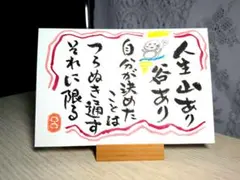 人生山あり
谷あり
自分が決めた
ことは
つらぬき通す
それに限る